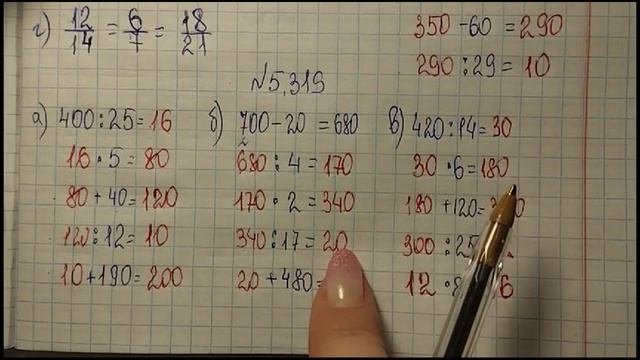 г) 12/14 = 6/7 = 18/21
350 - 60 = 290
290 : 29 = 10
№5.319
а) 400 : 25 = 16
16 · 5 = 80
80 + 40 = 120
120 : 12 = 10
10 + 190 = 200
б) 700 - 20 = 680
680 : 4 = 170
170 · 2 = 340
340 : 17 = 20
20 + 480 =
в) 420 : 14 = 30
30 · 6 = 180
180 + 120 =
300 : 25
12 ·